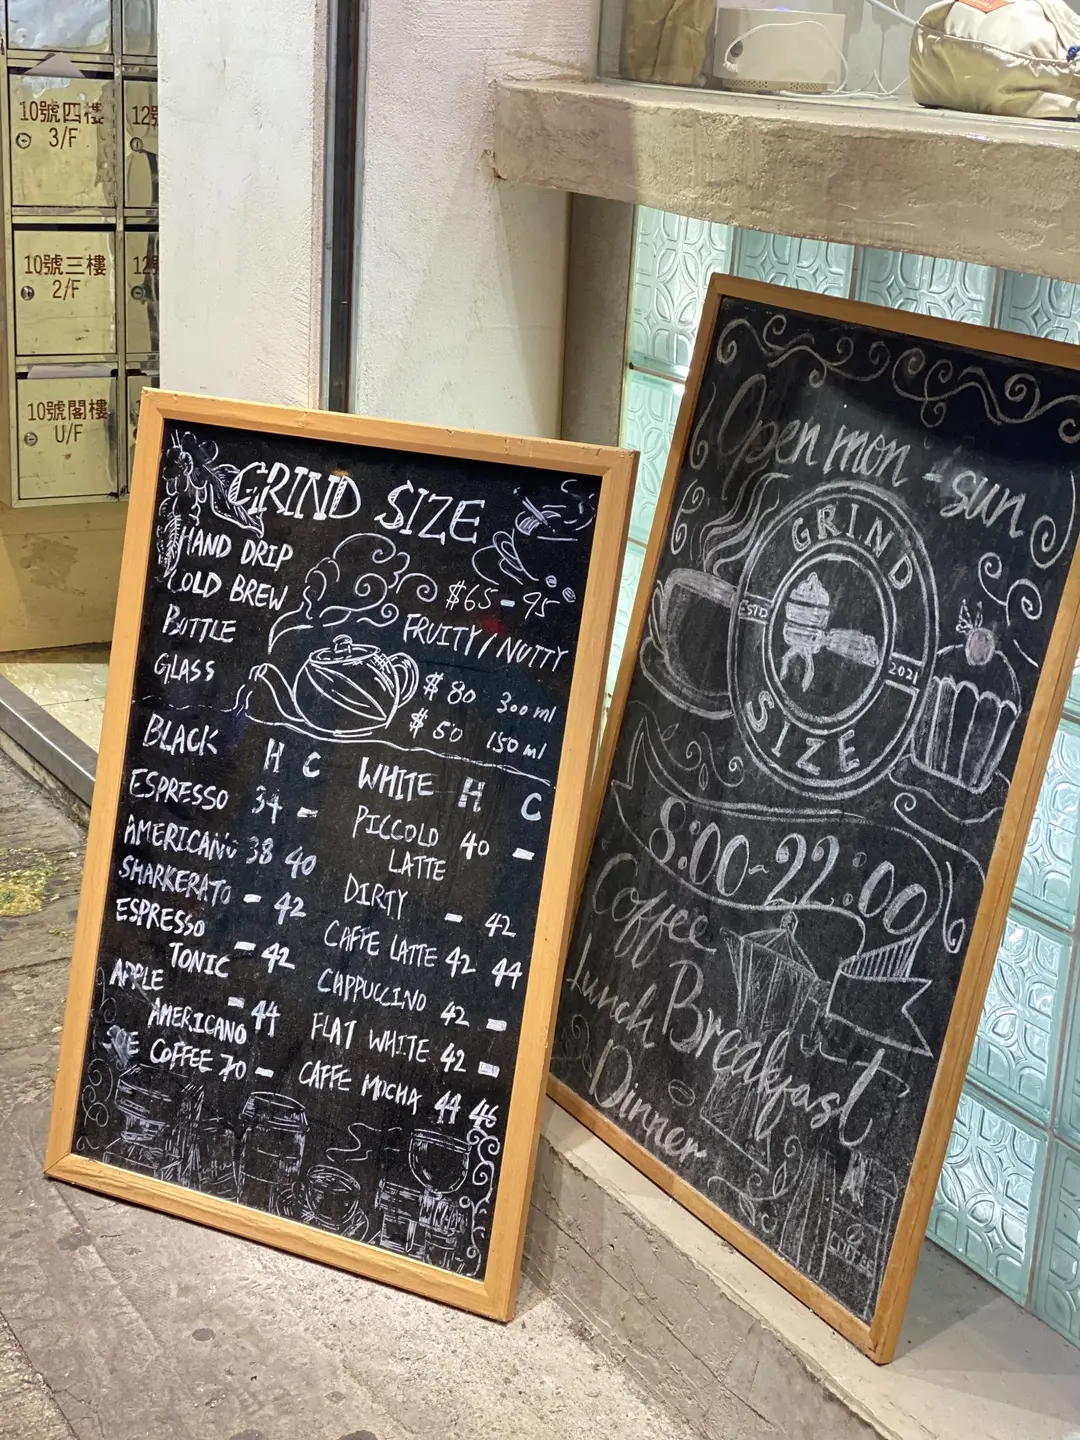 10號四樓
3/F
10號三樓
2/F
10號閣樓
U/F
12號
12
GRIND SIZE
HAND DRIP $65-95
COLD BREW FRUITY/NUTTY
BOTTLE $80 300ml
GLASS $50 150ml
BLACK H C
ESPRESSO 34 -
AMERICANO 38 40
SHARKERATO - 42
ESPRESSO
TONIC - 42
APPLE
AMERICANO - 44
SOE COFFEE 70 -
WHITE H C
PICCOLO
LATTE 40 -
DIRTY - 42
CAFFE LATTE 42 44
CAPPUCCINO 42 -
FLAT WHITE 42 -
CAFFE MOCHA 44 46
Open mon-sun
GRIND
ESTD 2021
SIZE
8:00~22:00
Coffee
Lunch Breakfast
Dinner
COFFEE